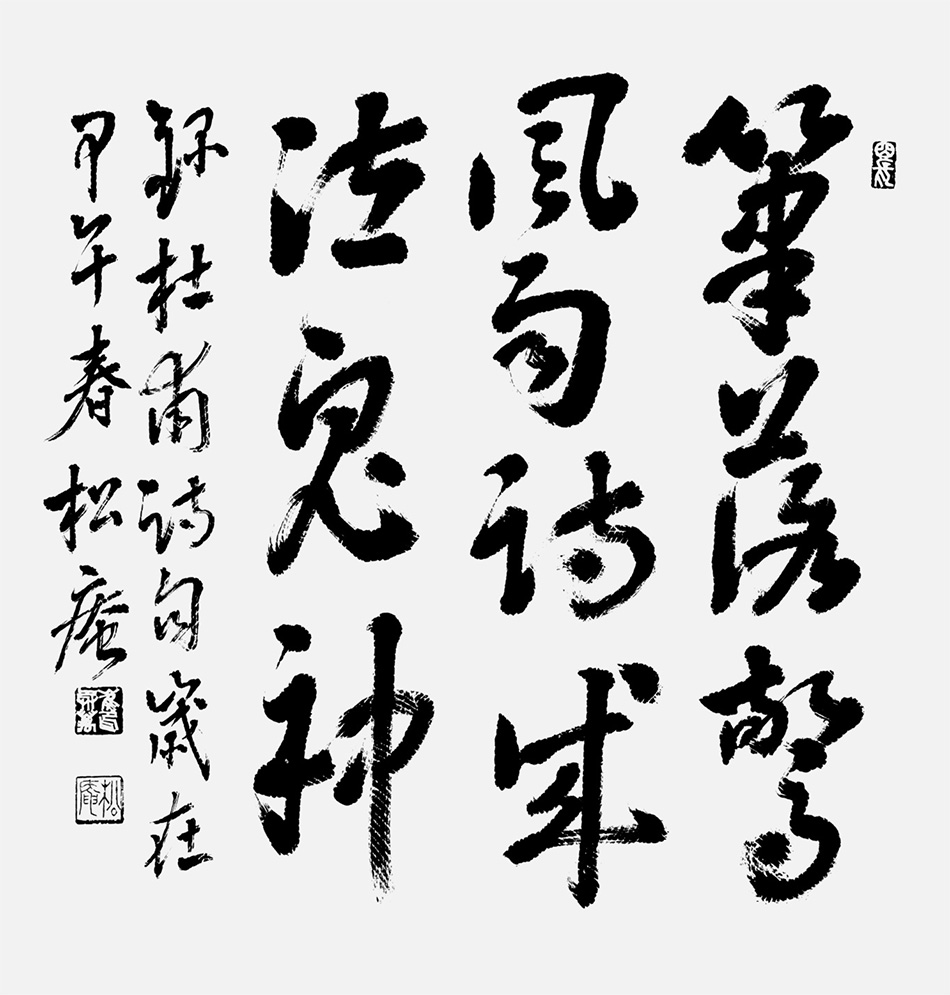 筆落驚
風雨詩成
泣鬼神
録杜甫詩句歲在
甲午春松庵
松庵